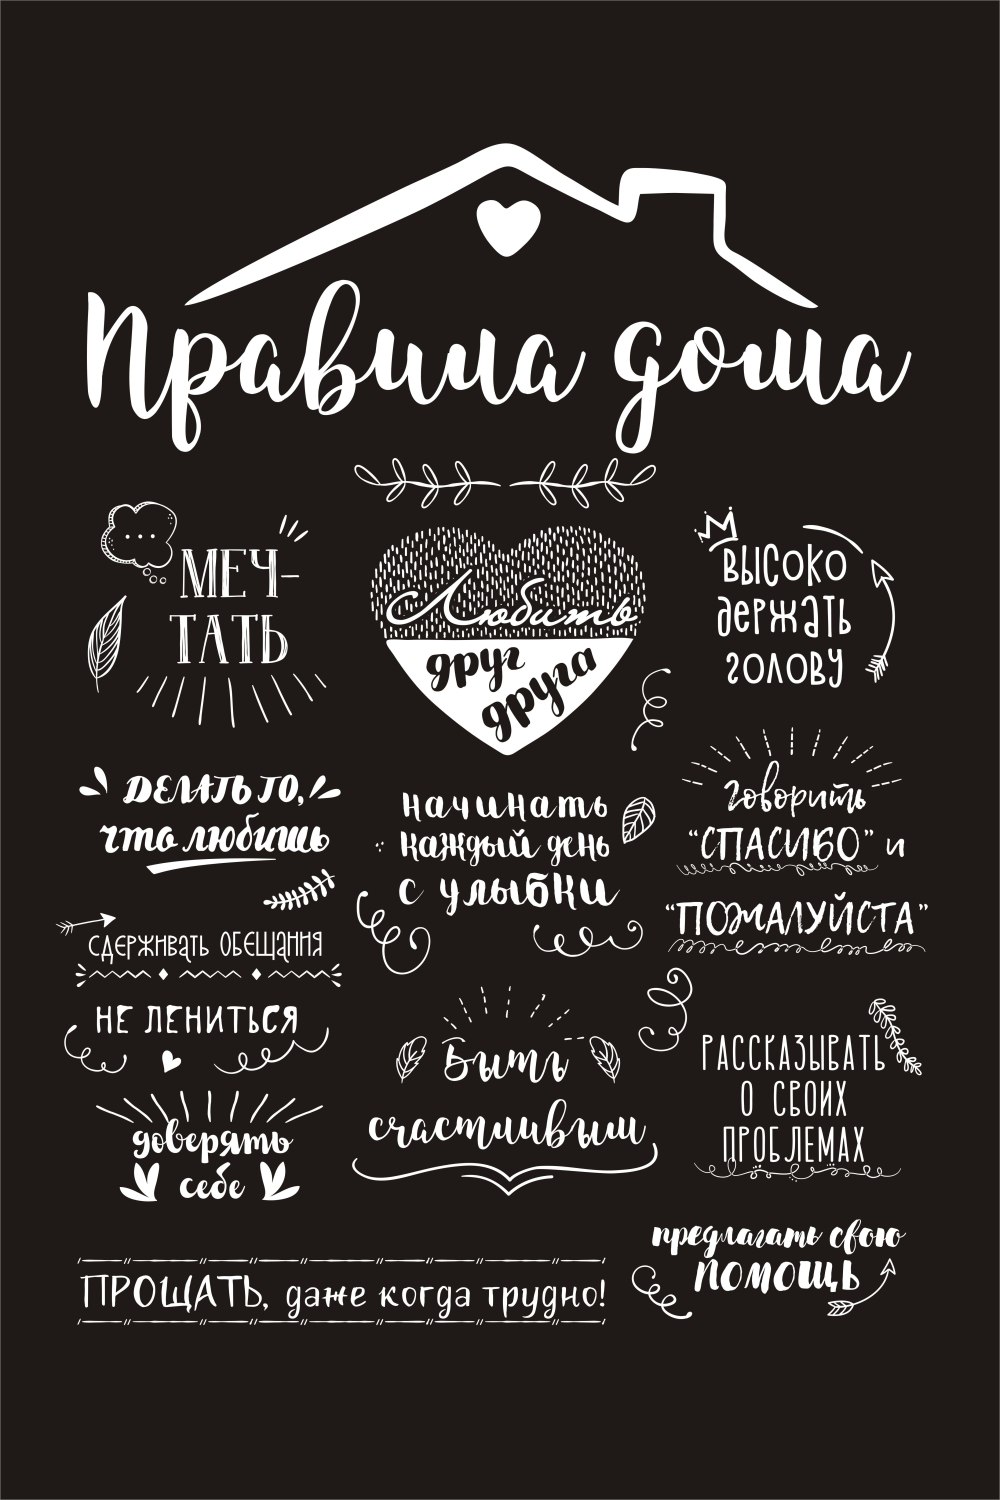 Правила дома
МЕЧ-
ТАТЬ
Любить
друг
друга
ВЫСОКО
держать
голову
ДЕЛАТЬ ТО,
что любишь
начинать
каждый день
с улыбки
говорить
“СПАСИБО” и
“ПОЖАЛУЙСТА”
СДЕРЖИВАТЬ ОБЕЩАНИЯ
НЕ ЛЕНИТЬСЯ
доверять
себе
Быть
счастливым
РАССКАЗЫВАТЬ
О СВОИХ
ПРОБЛЕМАХ
предлагать свою
ПОМОЩЬ
ПРОЩАТЬ, даже когда трудно!